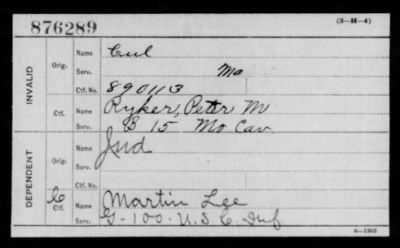 876289
(3-H-4)
INVALID
Orig.
Name
Serv. Mo
Ctf. No. 890113
Ctf.
Name Ryker, Peter M
Serv. B 15 Mo Cav.
DEPENDENT
Orig.
Name
Serv.
Ctf. No.
C
Ctf.
Name Martin Lee
Serv. G-100-U.S.C. Inf.
6-1903